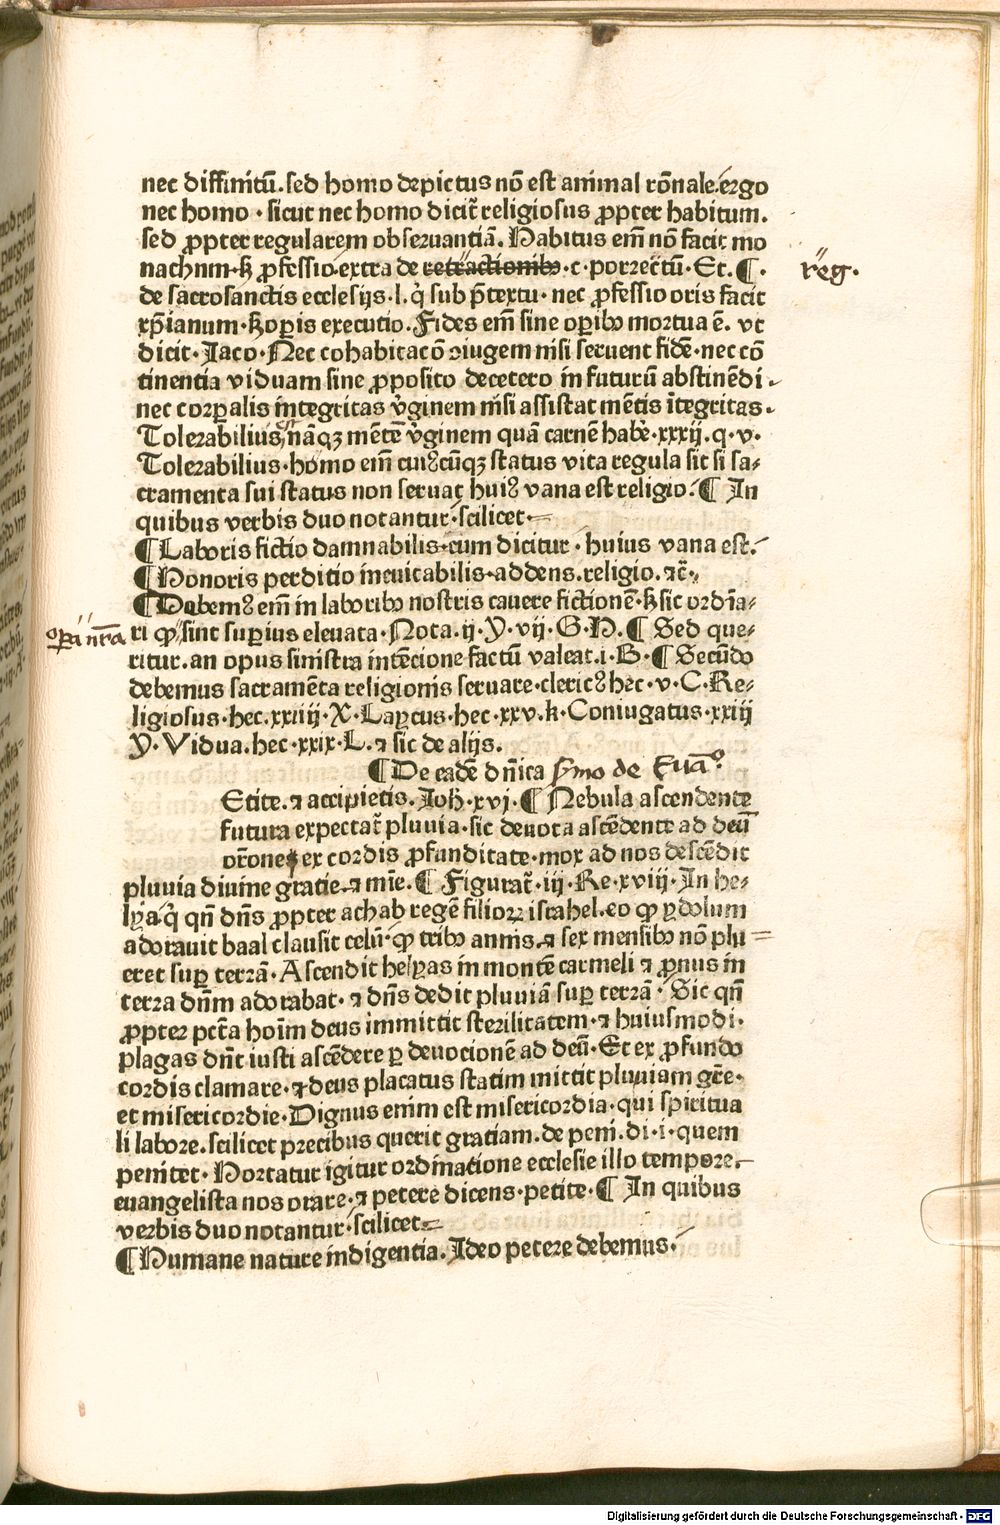 nec diffinitū. sed homo depictus nō est animal rōnale. ergo
nec homo · sicut nec homo dicit̃ religiosus ꝓpter habitum.
sed ꝓpter regularem obseruantiā. Habitus em̄ nō facit mo
nachum· ꝓfessio· extra de retractionibꝰ · c · porrectū · Et. ¶ ·
reg.
de sacrosanctis ecclesijs · l · q̇ sub p̄textu · nec ꝓfessio oris facit
xp̄ianum · ꜩ oꝑis executio. Fides em̄ sine oꝑibꝰ mortua ē. vt
dicit · Jaco · Nec cohabitacō ↄiugem nisi seruent fidē · nec cō
tinentia viduam sine ꝓposito decetero in futurū abstinēdi ·
nec corꝑalis integritas v̇ginem nisi assistat mētis ītegritas ·
Tolerabilius est nāqꝫ mētē v̇ginem quā carnē habē · xxxij · q · v ·
Tolerabilius · homo em̄ cuiꝰcūqꝫ status vita regula sit si sa-
cramenta sui status non seruat huiꝰ vana est religio. ¶ In
quibus verbis duo notantur · scilicet
¶ Laboris fictio damnabilis · cum dicitur · huius vana est.
¶ Honoris perditio ineuitabilis · addens. religio. ⁊c̄ ·
¶ Debemꝰ em̄ in laboribꝰ nostris cauere fictionē · ꜩ sic ordīa-
oꝑa nr̄a
ri ꝙ sint suꝑius eleuata · Nota. ij · Y · vij · G · H · ¶ Sed que-
ritur. an opus sinistra intēcione factū valeat. i · B · ¶ Secūdo
debemus sacramēta religionis seruare · clericꝰ hec · v · C · Re-
ligiosus · hec. xxiiij · X · Laycus · hec · xxv · k · Coniugatus · xxiij
Y · Vidua. hec · xxix · L · ⁊ sic de alijs.
¶ De eadē dn̄ica s̄mo de Euāᵒ
Etite. ⁊ accipietis. Joh̄ · xvj · ¶ Nebula ascendente
futura expectat̃ pluuia · sic deuota ascēdente ad deū
or̄one ex cordis ꝓfunditate · mox ad nos descēdit
pluuia diuine gratie · ⁊ mīe. ¶ Figurat̃ · iij · Re · xviij · In he-
lya q̇ qn̄ dn̄s ꝓpter achab regē filioꝝ israhel · eo ꝙ ydolum
adorauit baal clausit celū · ꝙ tribꝰ annis · ⁊ sex mensibꝰ nō plu
eret suꝑ terrā · Ascendit helyas in montē carmeli ⁊ ꝓnus in
terra dn̄m adorabat · ⁊ dn̄s dedit pluuiā suꝑ terrā · Sic qn̄
ꝓpter pct̄a hoīm deus immittit sterilitatem · ⁊ huiusmodi ·
plagas dn̄t iusti ascēdere ꝑ deuocionē ad deū · Et ex ꝓfundo
cordis clamare · ⁊ deus placatus statim mittit pluuiam gr̄e ·
et misericordie · Dignus enim est misericordia · qui spiritua
li labore. scilicet precibus querit gratiam. de peni. di · i · quem
penitet · Hortatur igitur ordinatione ecclesie illo tempore
euangelista nos orare · ⁊ petere dicens · petite · ¶ In quibus
verbis duo notantur · scilicet
¶ Humane nature indigentia. Ideo petere debemus.
Digitalisierung gefördert durch die Deutsche Forschungsgemeinschaft - DFG